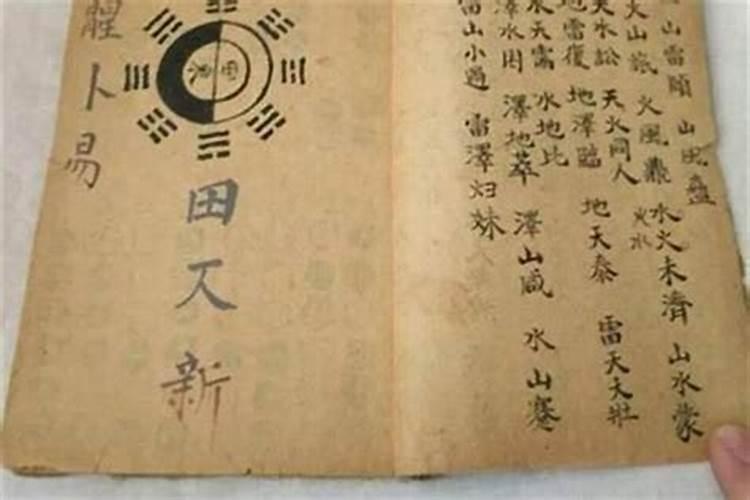 山雷頤 山風蠱
火山旅 火風鼎 火水 水火未濟 山水蒙
天水訟 天火同人 地天泰 雷天大壯
地雷復 地澤臨
水天需 水地比
澤水困 澤地萃 澤山咸 水山蹇
雷山小過 雷澤归妹
田又新
卜易